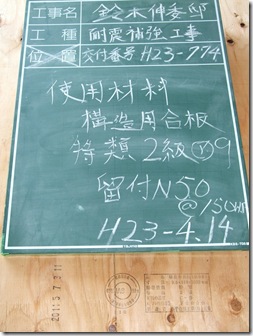 工事名 鈴木伸委邸
工種 耐震補強工事
位置 交付番号 H23-774
使用材料
構造用合板
特類 2級 ⑦9
留付N50
@150以下
H23-4.14